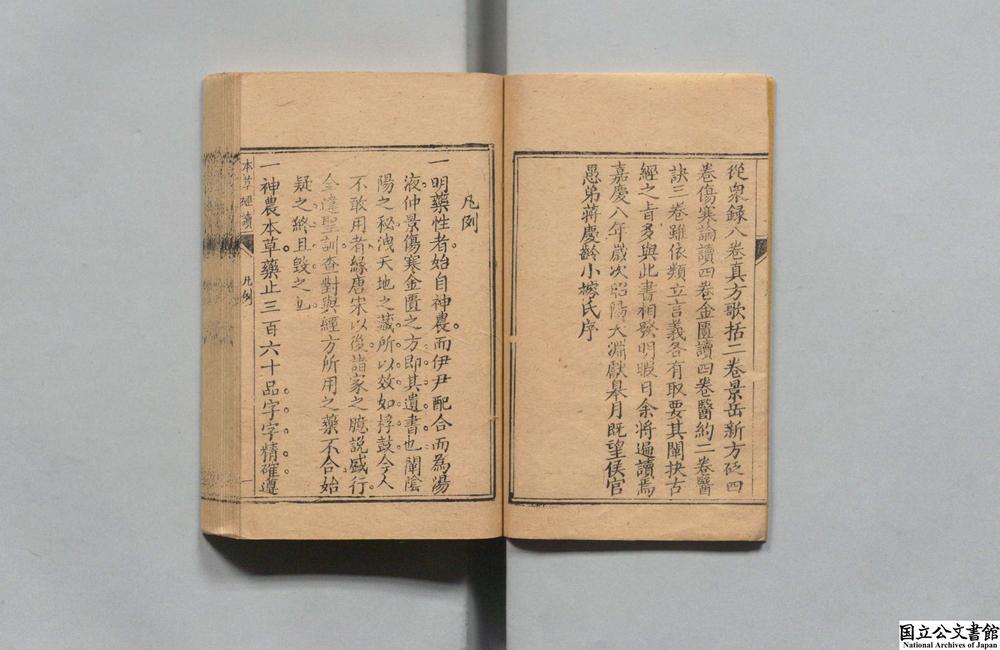 從衆録八卷真方歌括二卷景岳新方砭四
卷傷寒論讀四卷金匱讀四卷醫約二卷醫
訣三卷雖依類立言義各有取要其闡抉古
經之旨多與此書相發明暇日余將遍讀焉
嘉慶八年歲次昭陽大淵獻皋月既望侯官
愚弟蔣慶齡小榕氏序
凡例
一明藥性者始自神農而伊尹配合而為湯
液仲景傷寒金匱之方即其遺書也闡陰
陽之秘洩天地之藏所以效如桴鼓今人
不敢用者緣唐宋以後諸家之臆說盛行
全違聖訓查對與經方所用之藥不合始
疑之終且毀之也
一神農本草藥止三百六十品字字精確遵
本草經讀
凡例
一
国立公文書館
National Archives of Japan